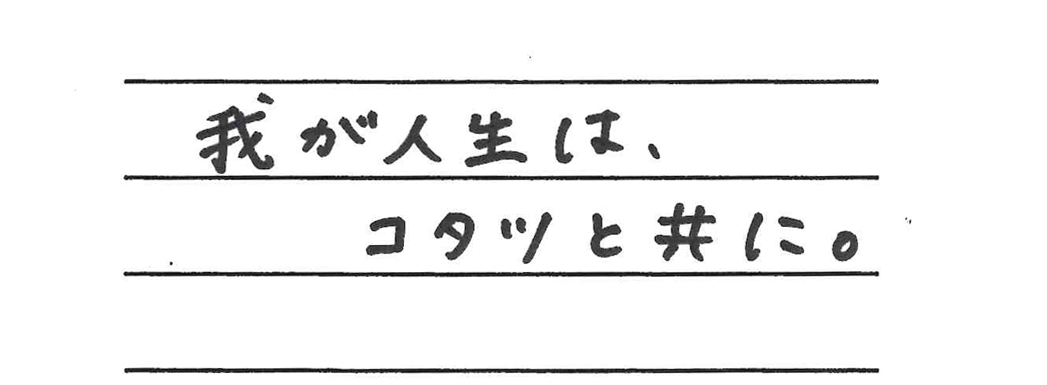 我が人生は、
コタツと共に。